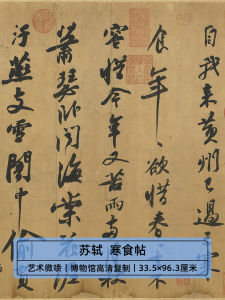 自我來黃州已過三寒
食年〻欲惜春
容惜今年又苦雨兩
蕭瑟卧聞海棠花泥
汙燕支雪闇中偷負
苏轼 寒食帖
艺术微喷 | 博物馆高清复制 | 33.5×96.3厘米